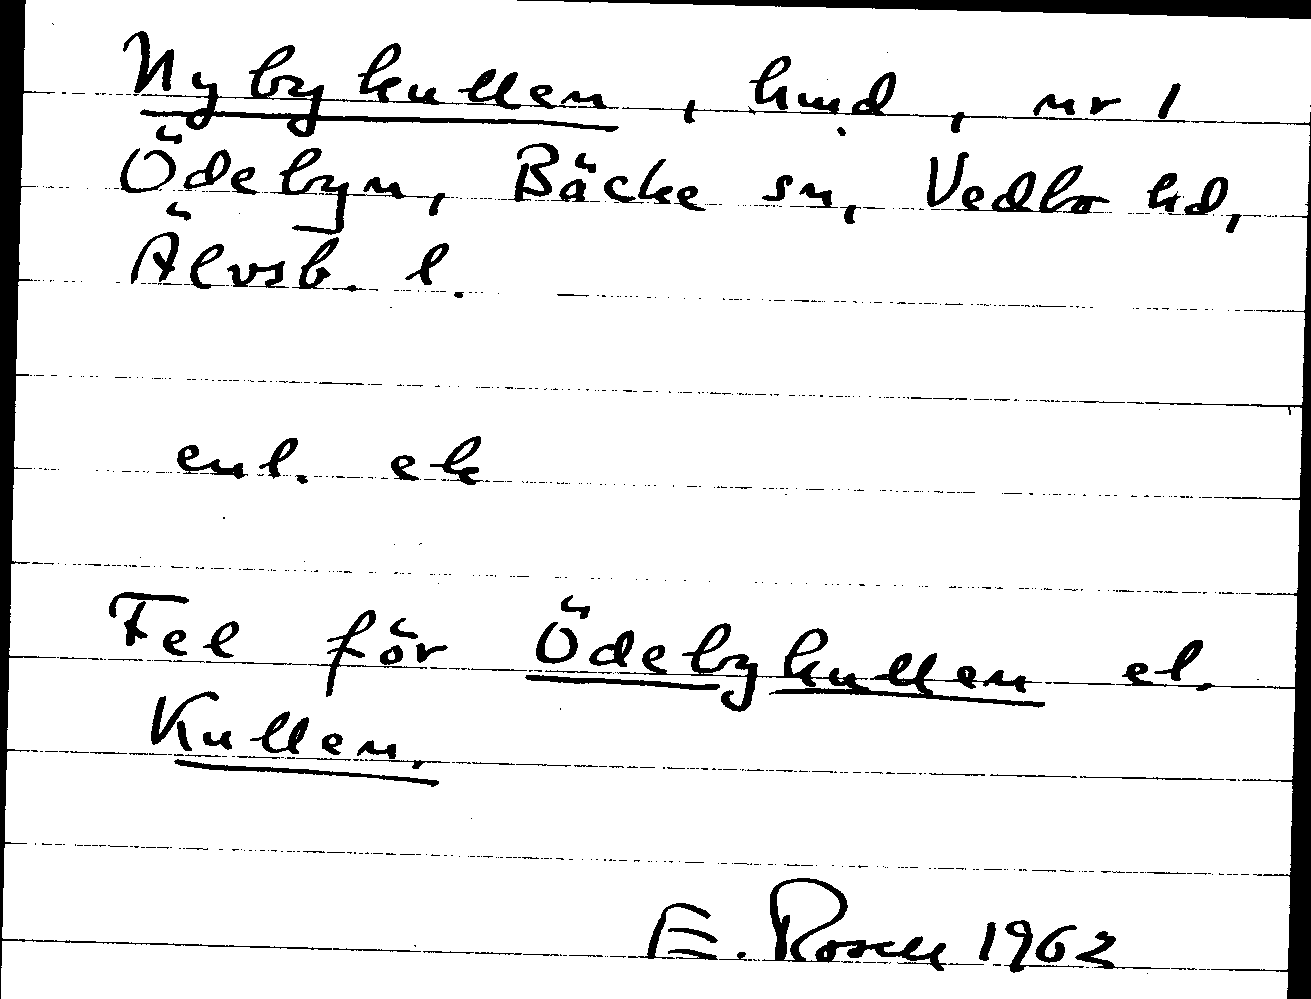 Nybykullen, hmd, nr 1
Ödebyn, Bäcke sn, Vedbo hd,
Älvsb. l.
enl. ek
Fel för Ödebykullen el.
Kullen.
E. Rosell 1962